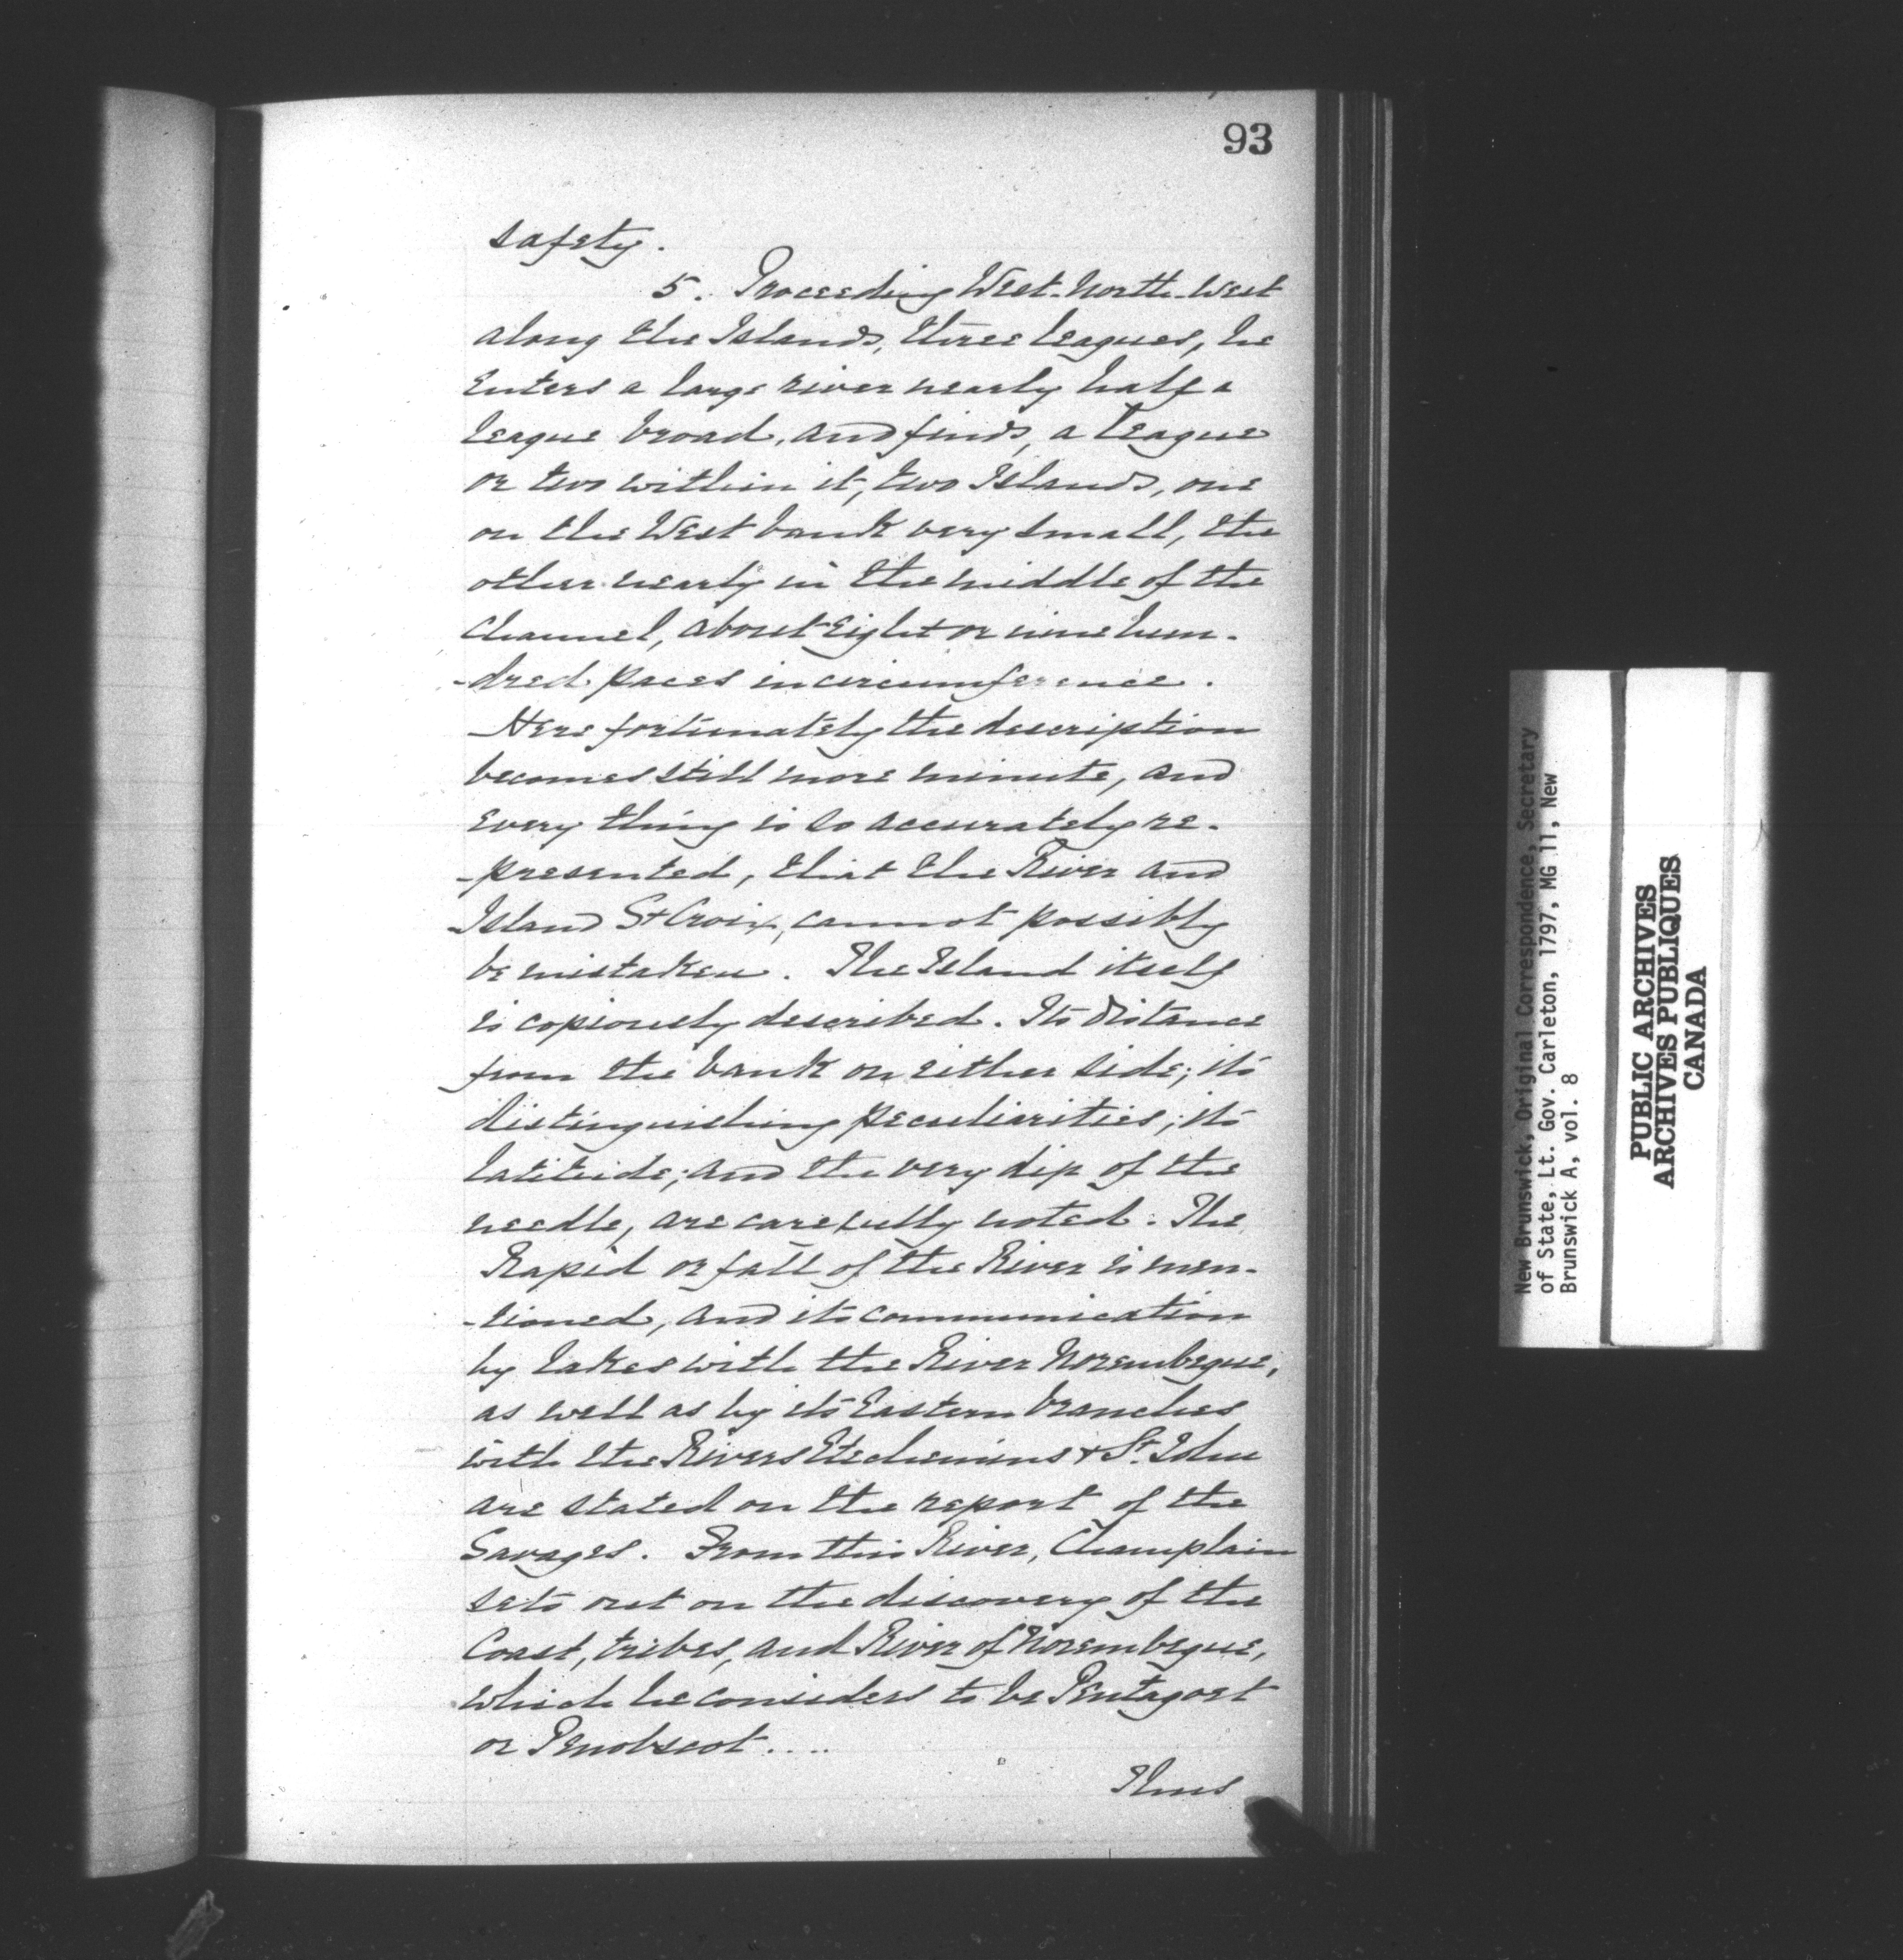 93
safety.
5. Proceeding West-North-West
along the Islands, three leagues, he
enters a large river nearly half a
league broad, and finds, a league
or two within it, two Islands, one
on the West bank very small, the
other nearly in the middle of the
channel, about eight or nine hun-
-dred paces in circumference.
Here fortunately the description
becomes still more minute, and
every thing is so accurately re-
-presented, that the River and
Island St Croix, cannot possibly
be mistaken. The Island itself
is copiously described. Its distance
from the bank on either side; its
distinguishing peculiarities; its
latitude; and the very dip of the
needle, are carefully noted. The
Rapid or fall of the River is men-
-tioned, and its communication
by lakes with the River Norembegue,
as well as by its Eastern branches
with the Rivers Etechemins & St. John
are stated on the report of the
Savages. From this River, Champlain
sets out on the discovery of the
Coast, tribes, and River of Norembegue,
which he considers to be Pentagoet
or Penobscot....
Thus
New Brunswick, Original Correspondence, Secretary
of State, Lt. Gov. Carleton, 1797, MG 11, New
Brunswick A, vol. 8
PUBLIC ARCHIVES
ARCHIVES PUBLIQUES
CANADA